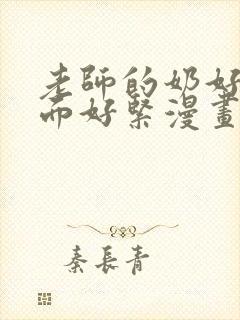 老師的奶好
而好緊漫畫
秦長青